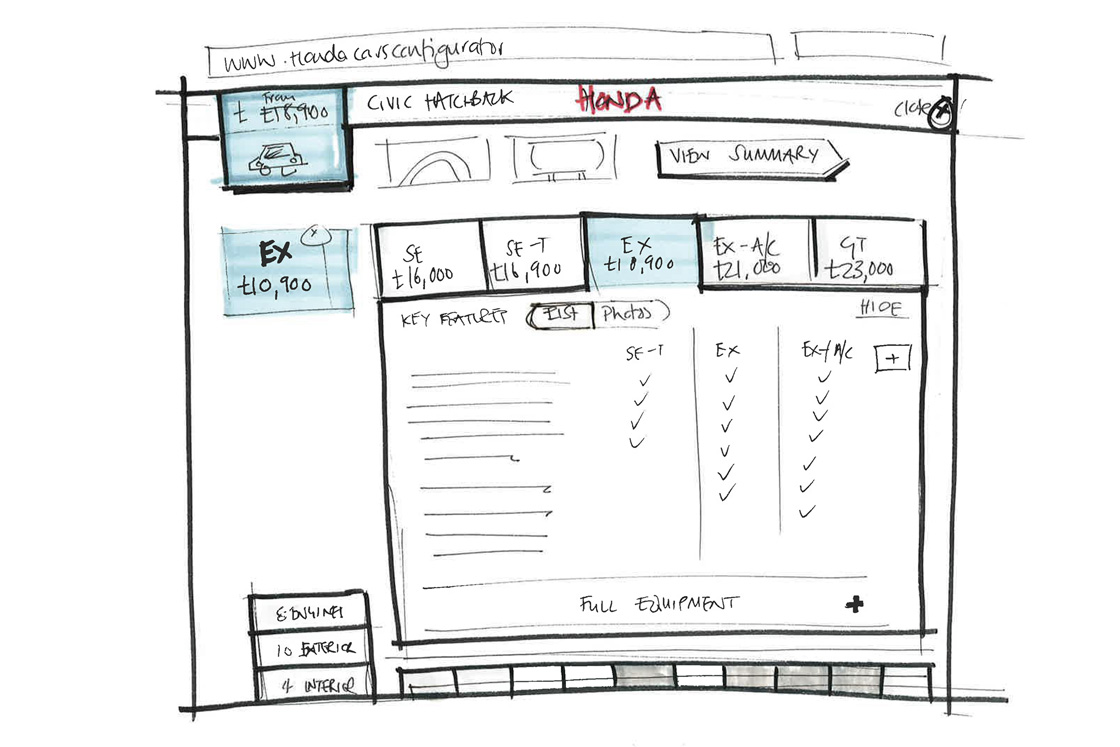 www.Hondacarsconfigurator
From
£18,900
CIVIC HATCHBACK
HONDA
close X
VIEW SUMMARY
EX
X
£10,900
SE
£16,000
SE-T
£16,900
EX
£18,900
EX-A/C
£21,000
GT
£23,000
KEY FEATURES
LIST
Photos
HIDE
SE-T
EX
EX-A/C
+
FULL EQUIPMENT +
8 ENGINES
10 EXTERIOR
4 INTERIOR